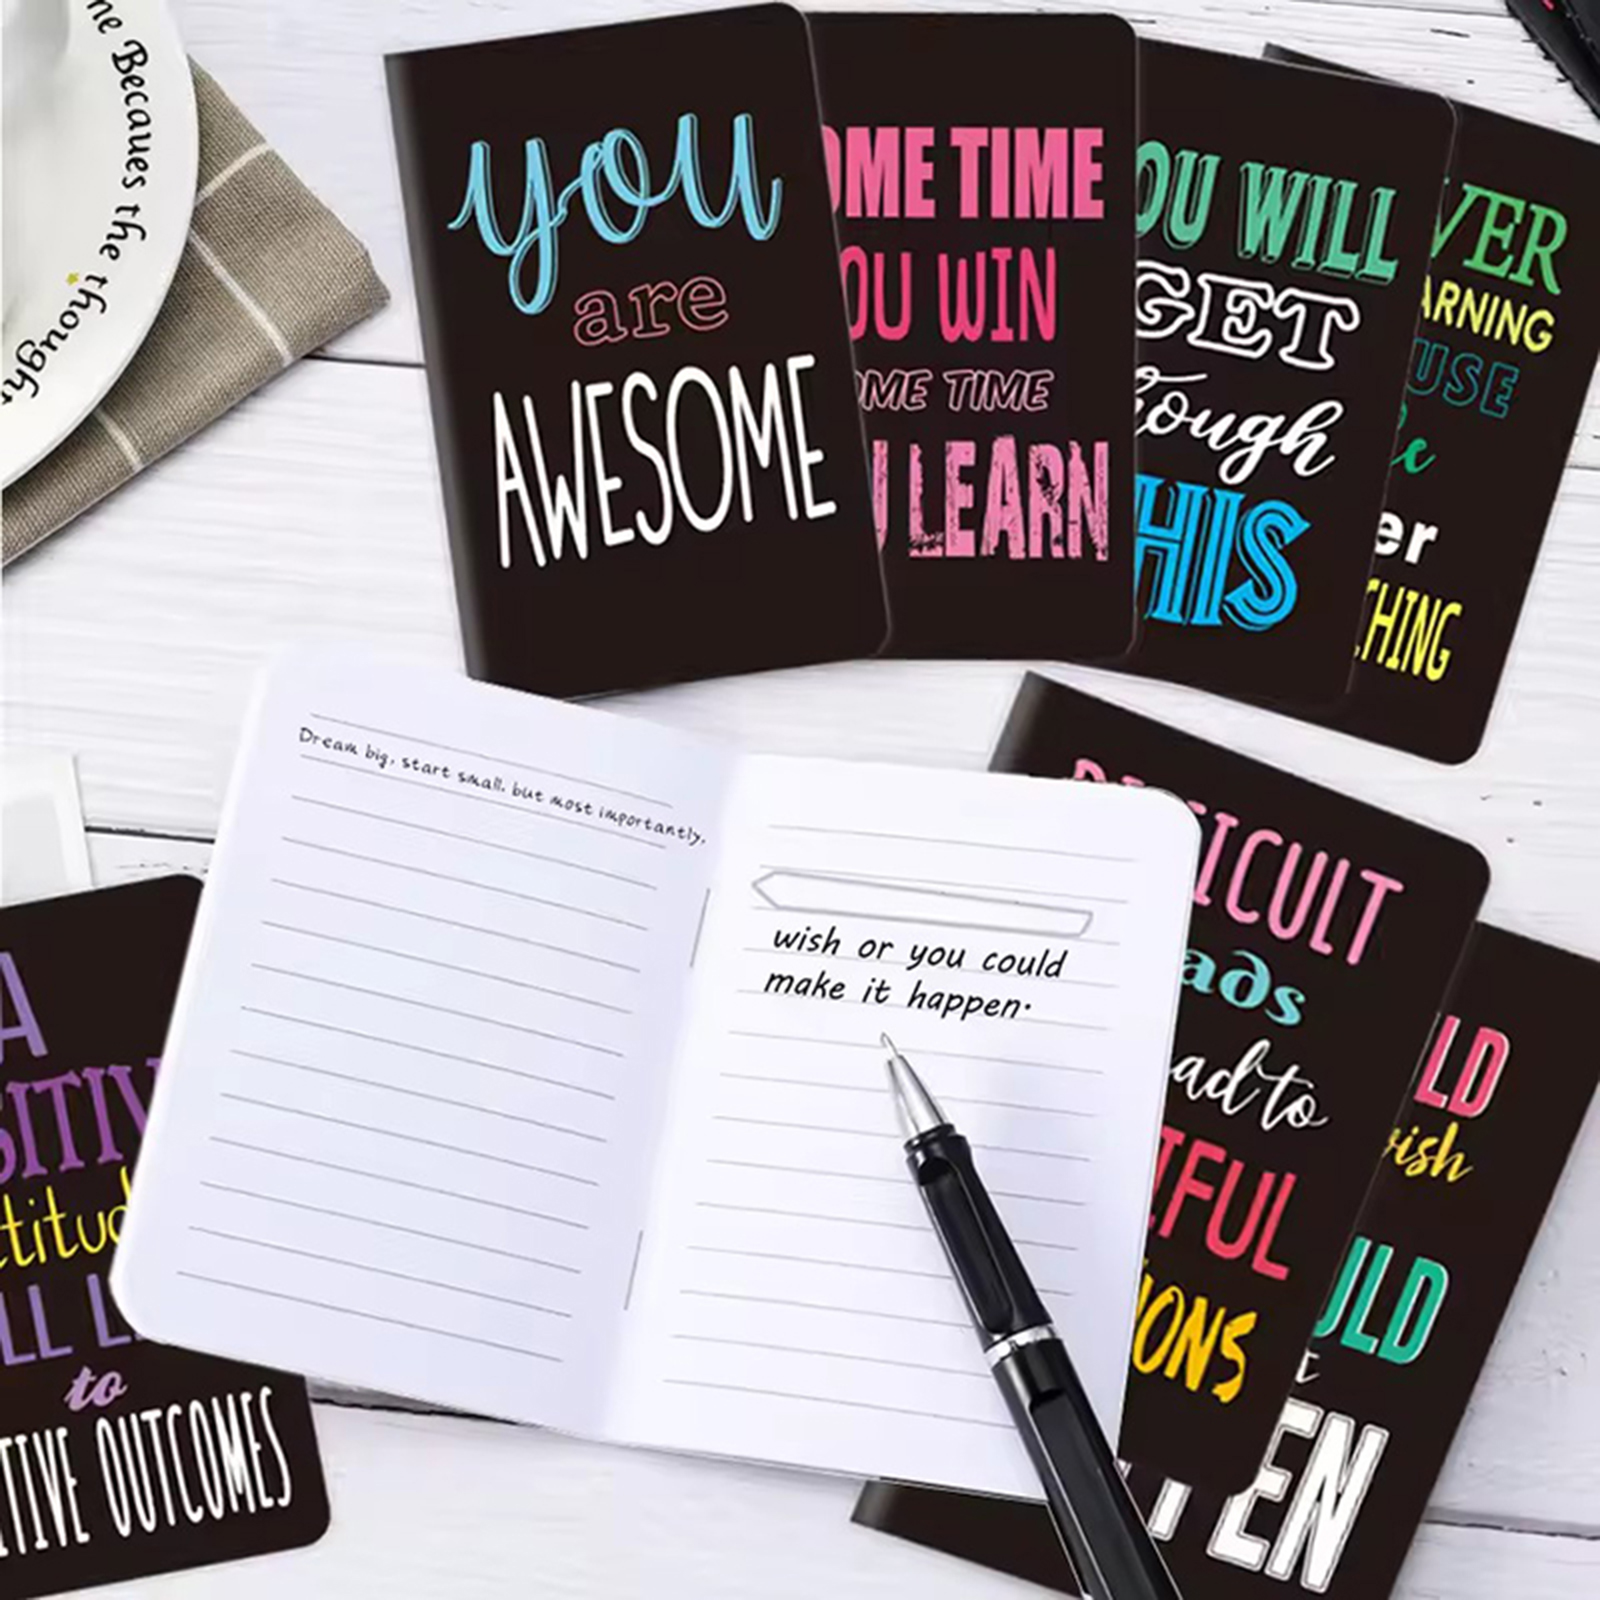 me Becaues the though
you
are
AWESOME
OME TIME
OU WIN
OME TIME
U LEARN
OU WILL
GET
hough
HIS
VER
ARNING
USE
fe
er
CHING
Dream big, start small. but most importantly,
wish or you could
make it happen.
DIFFICULT
ads
ad to
IFUL
IONS
LD
wish
ULD
t
EN
A
SITIV
ttitud
LL L
to
TIVE OUTCOMES